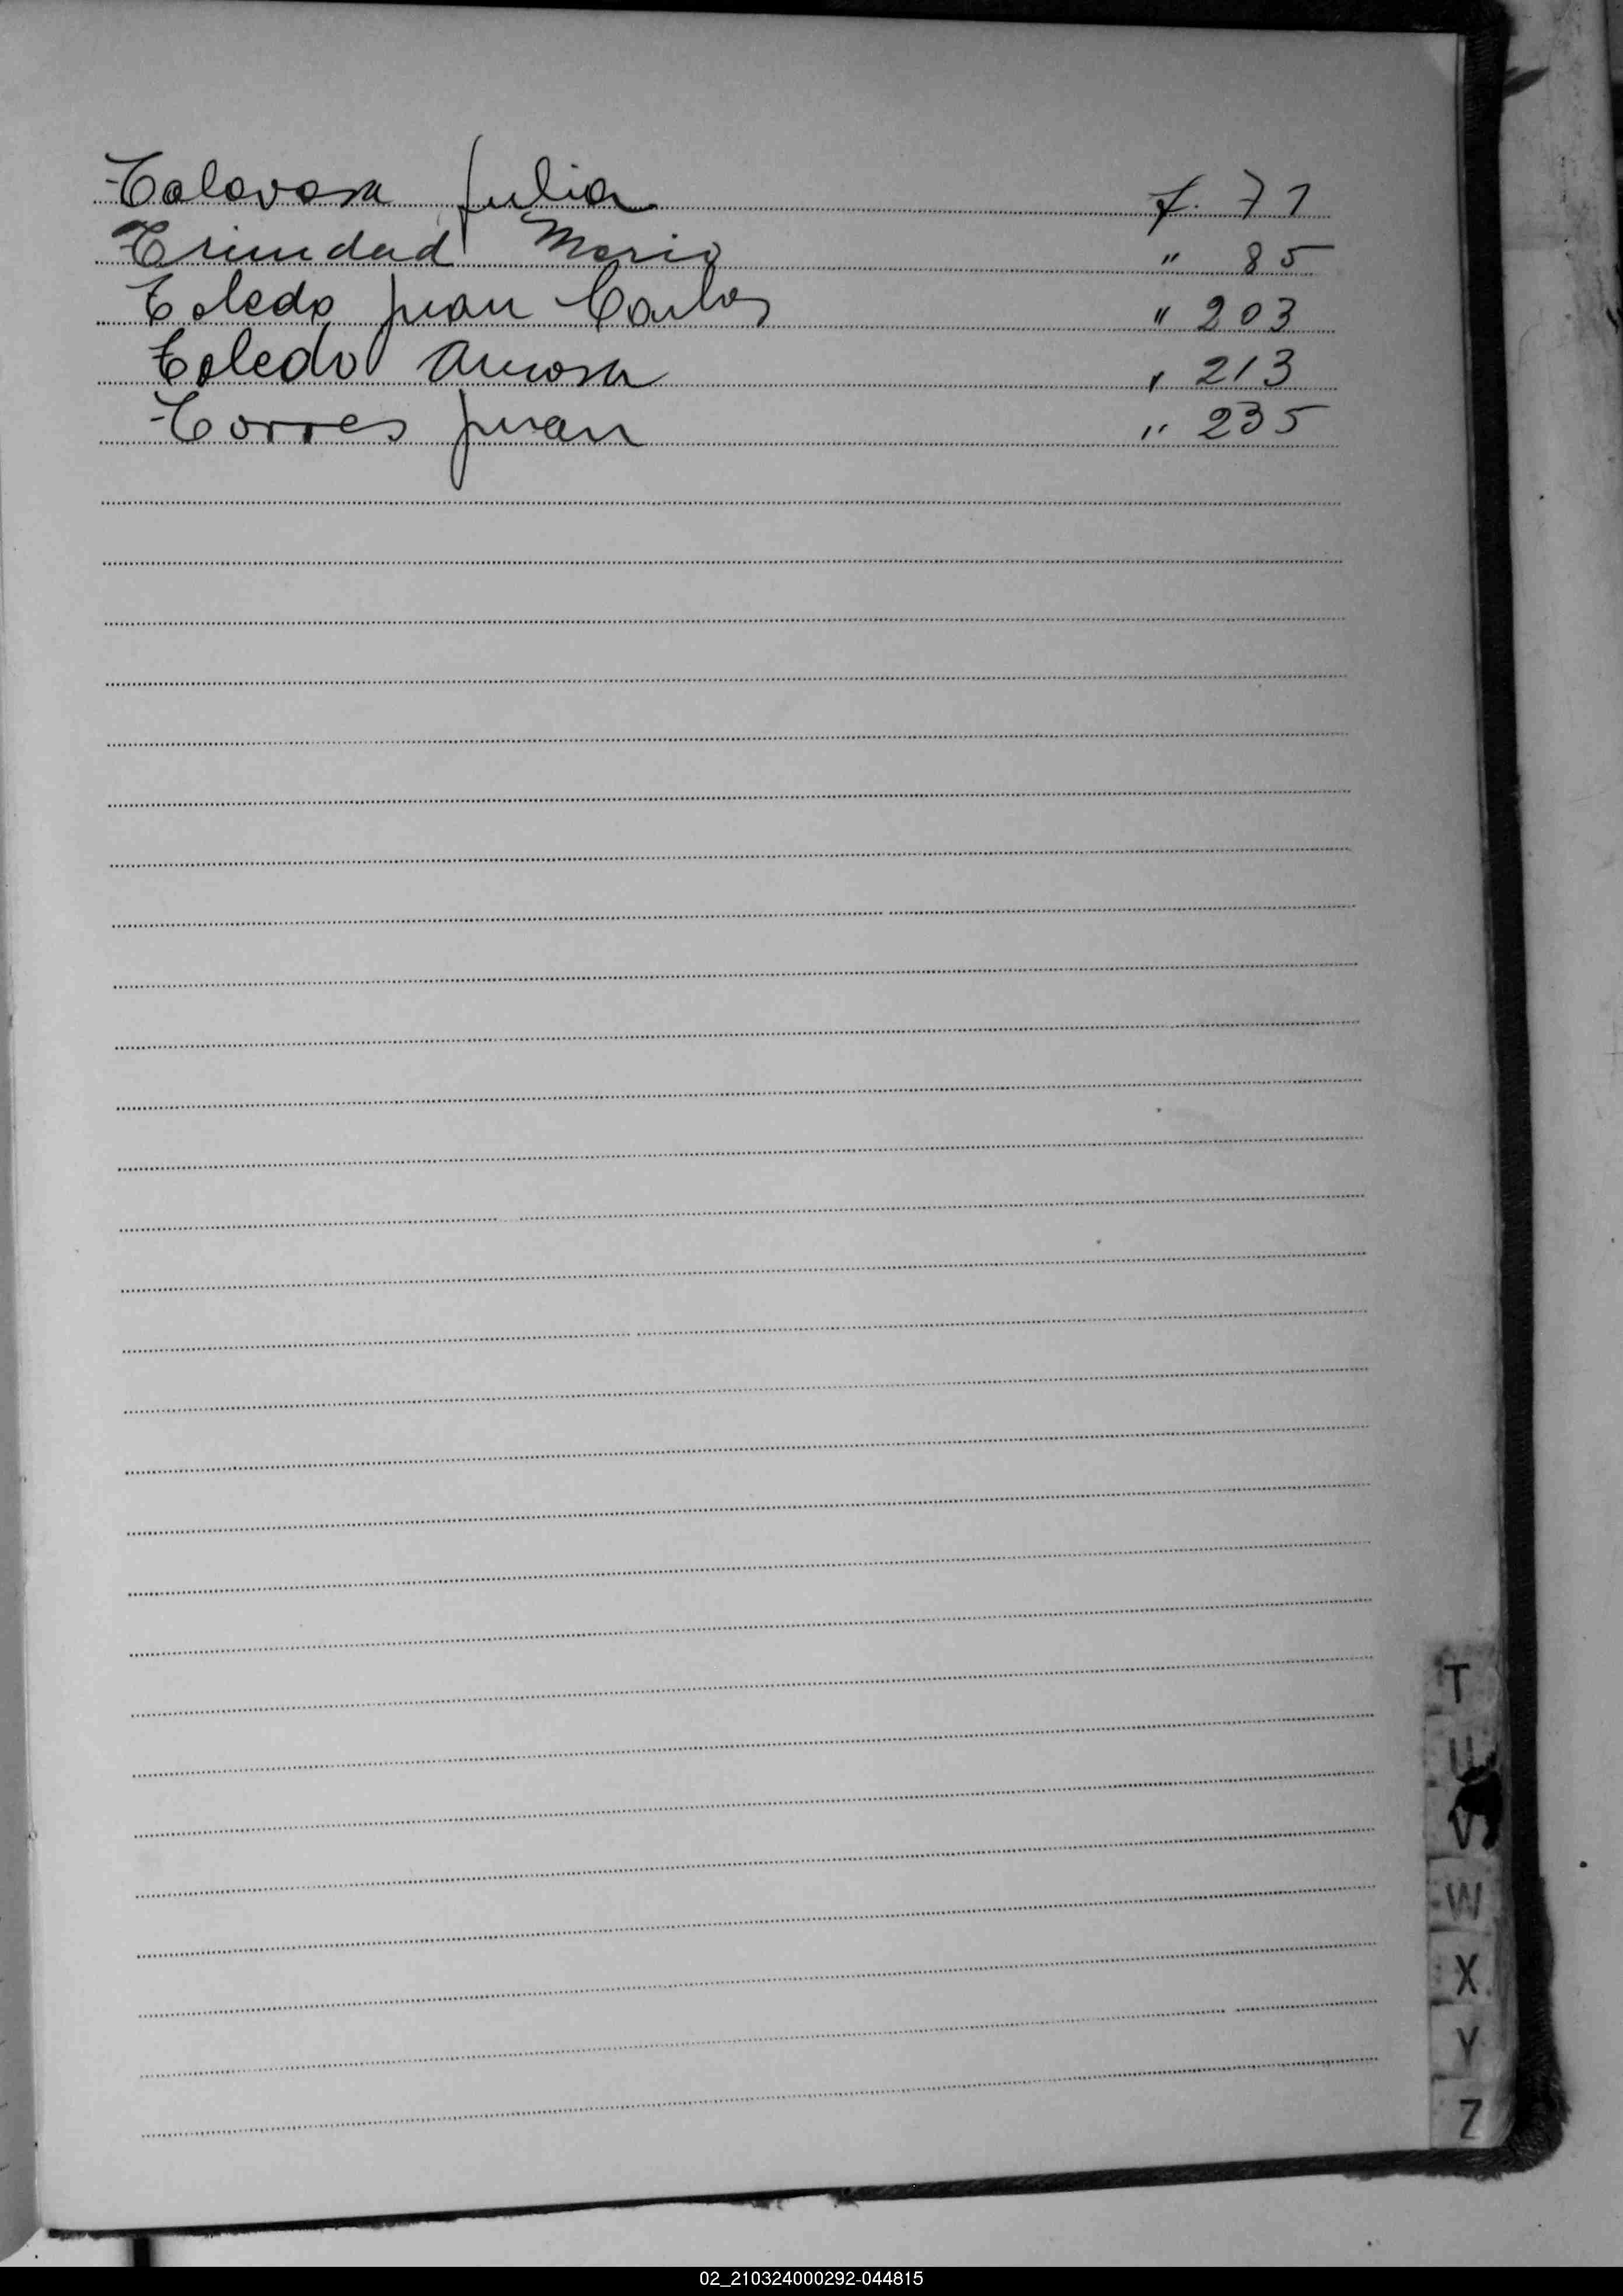 Talavera Julia f. 71
Trinidad Mario " 85
Toledo Juan Carlos " 203
Toledo " 213
Torres Juan " 235
T
U
V
W
X
Y
Z
02_210324000292-044815